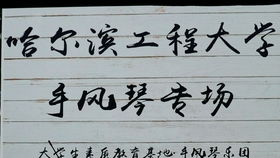 哈尔滨工程大学
手风琴专场
大学生素质教育基地·手风琴乐团